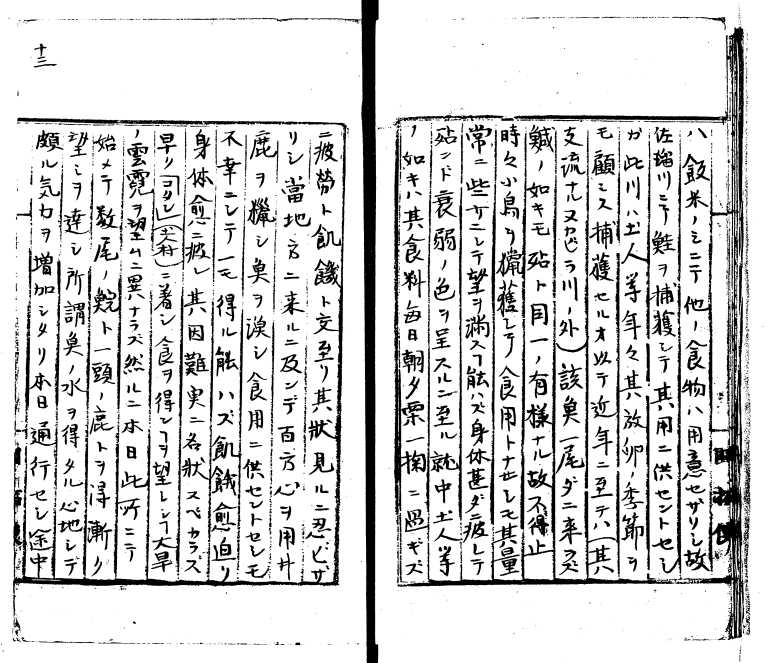 ハ飯米ノミニテ他ノ食物ハ用意セザリシ故
佐瑠川ニテ鮭ヲ捕獲シテ其用ニ供セントセシ
ガ此川ハ土人等年々其放卵ノ季節ヲ
モ顧ミス捕獲セルヲ以テ近年ニ至テハ(其
支流ナルヌカビラ川ノ外)該魚一尾ダニ来ラズ
鱒ノ如キモ殆ト同一ノ有様ナル故不得止
時々小鳥ヲ猟獲シテ食用トナセシモ其量
常ニ些少ニシテ望ヲ満スヿ能ハズ身体甚ダニ疲レテ
殆ンド衰弱ノ色ヲ呈スルニ至ル就中土人等
ノ如キハ其食料毎日朝夕粟一掬ニ過ギズ
十三
ニ疲労ト飢餓ト交至リ其状見ルニ忍ビザ
リシ當地方ニ来ルニ及ンデ百方心ヲ用井
鹿ヲ猟シ魚ヲ漁シ食用ニ供セントセシモ
不幸ニシテ一モ得ル能ハズ飢餓愈迫リ
身体愈ニ疲レ其困難実ニ名状スベカラズ
早ク「コタン」(土人村)ニ着シ食ヲ得ンヿヲ望シヿ大旱
ノ雲霓ヲ望ムニ異ハナラズ然ルニ本日此所ニテ
始メテ数尾ノ鯇ト一頭ノ鹿トヲ得漸ク
望ミヲ達シ所謂魚ノ水ヲ得タル心地シテ
頗ル気力ヲ増加シタリ本日通行セシ途中